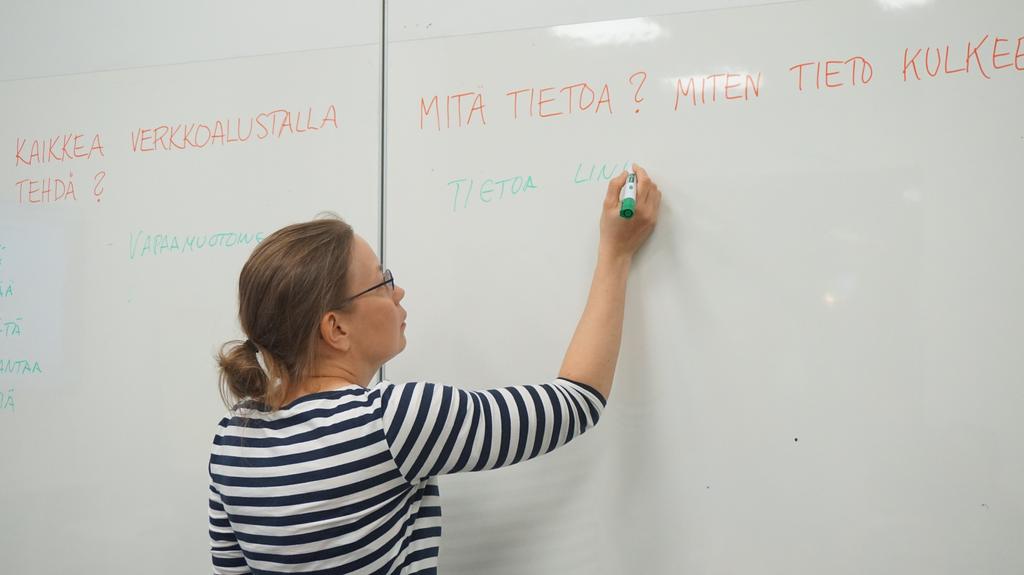 KAIKKEA VERKKOALUSTALLA
TEHDÄ ?
VAPAAMUOTOINE
MITÄ TIETOA ? MITEN TIETO KULKEE
TIETOA